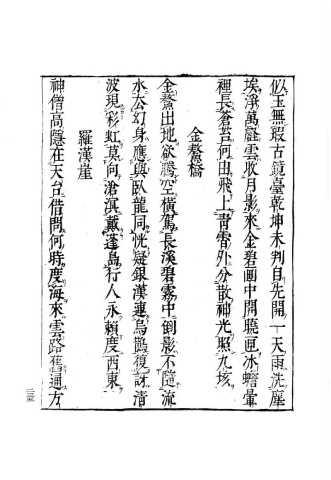 似玉無瑕古鏡臺乾坤未判自先開一天雨洗塵
埃淨萬壑雲收月影來金碧画中開曉匣冰蟾暈
裡長蒼苔何由飛上青霄外分散神光照九垓
金鰲橋
金鰲出地欲騰空橫駕長溪碧霧中倒影不隨流
水去幻身應與臥龍同恍疑銀漢連烏鵲復訝清
波現彩虹莫向滄溟戴蓬島行人永賴度西東
羅漢崖
神僧高隱在天台借問何時度海來雲路舊通方
三五